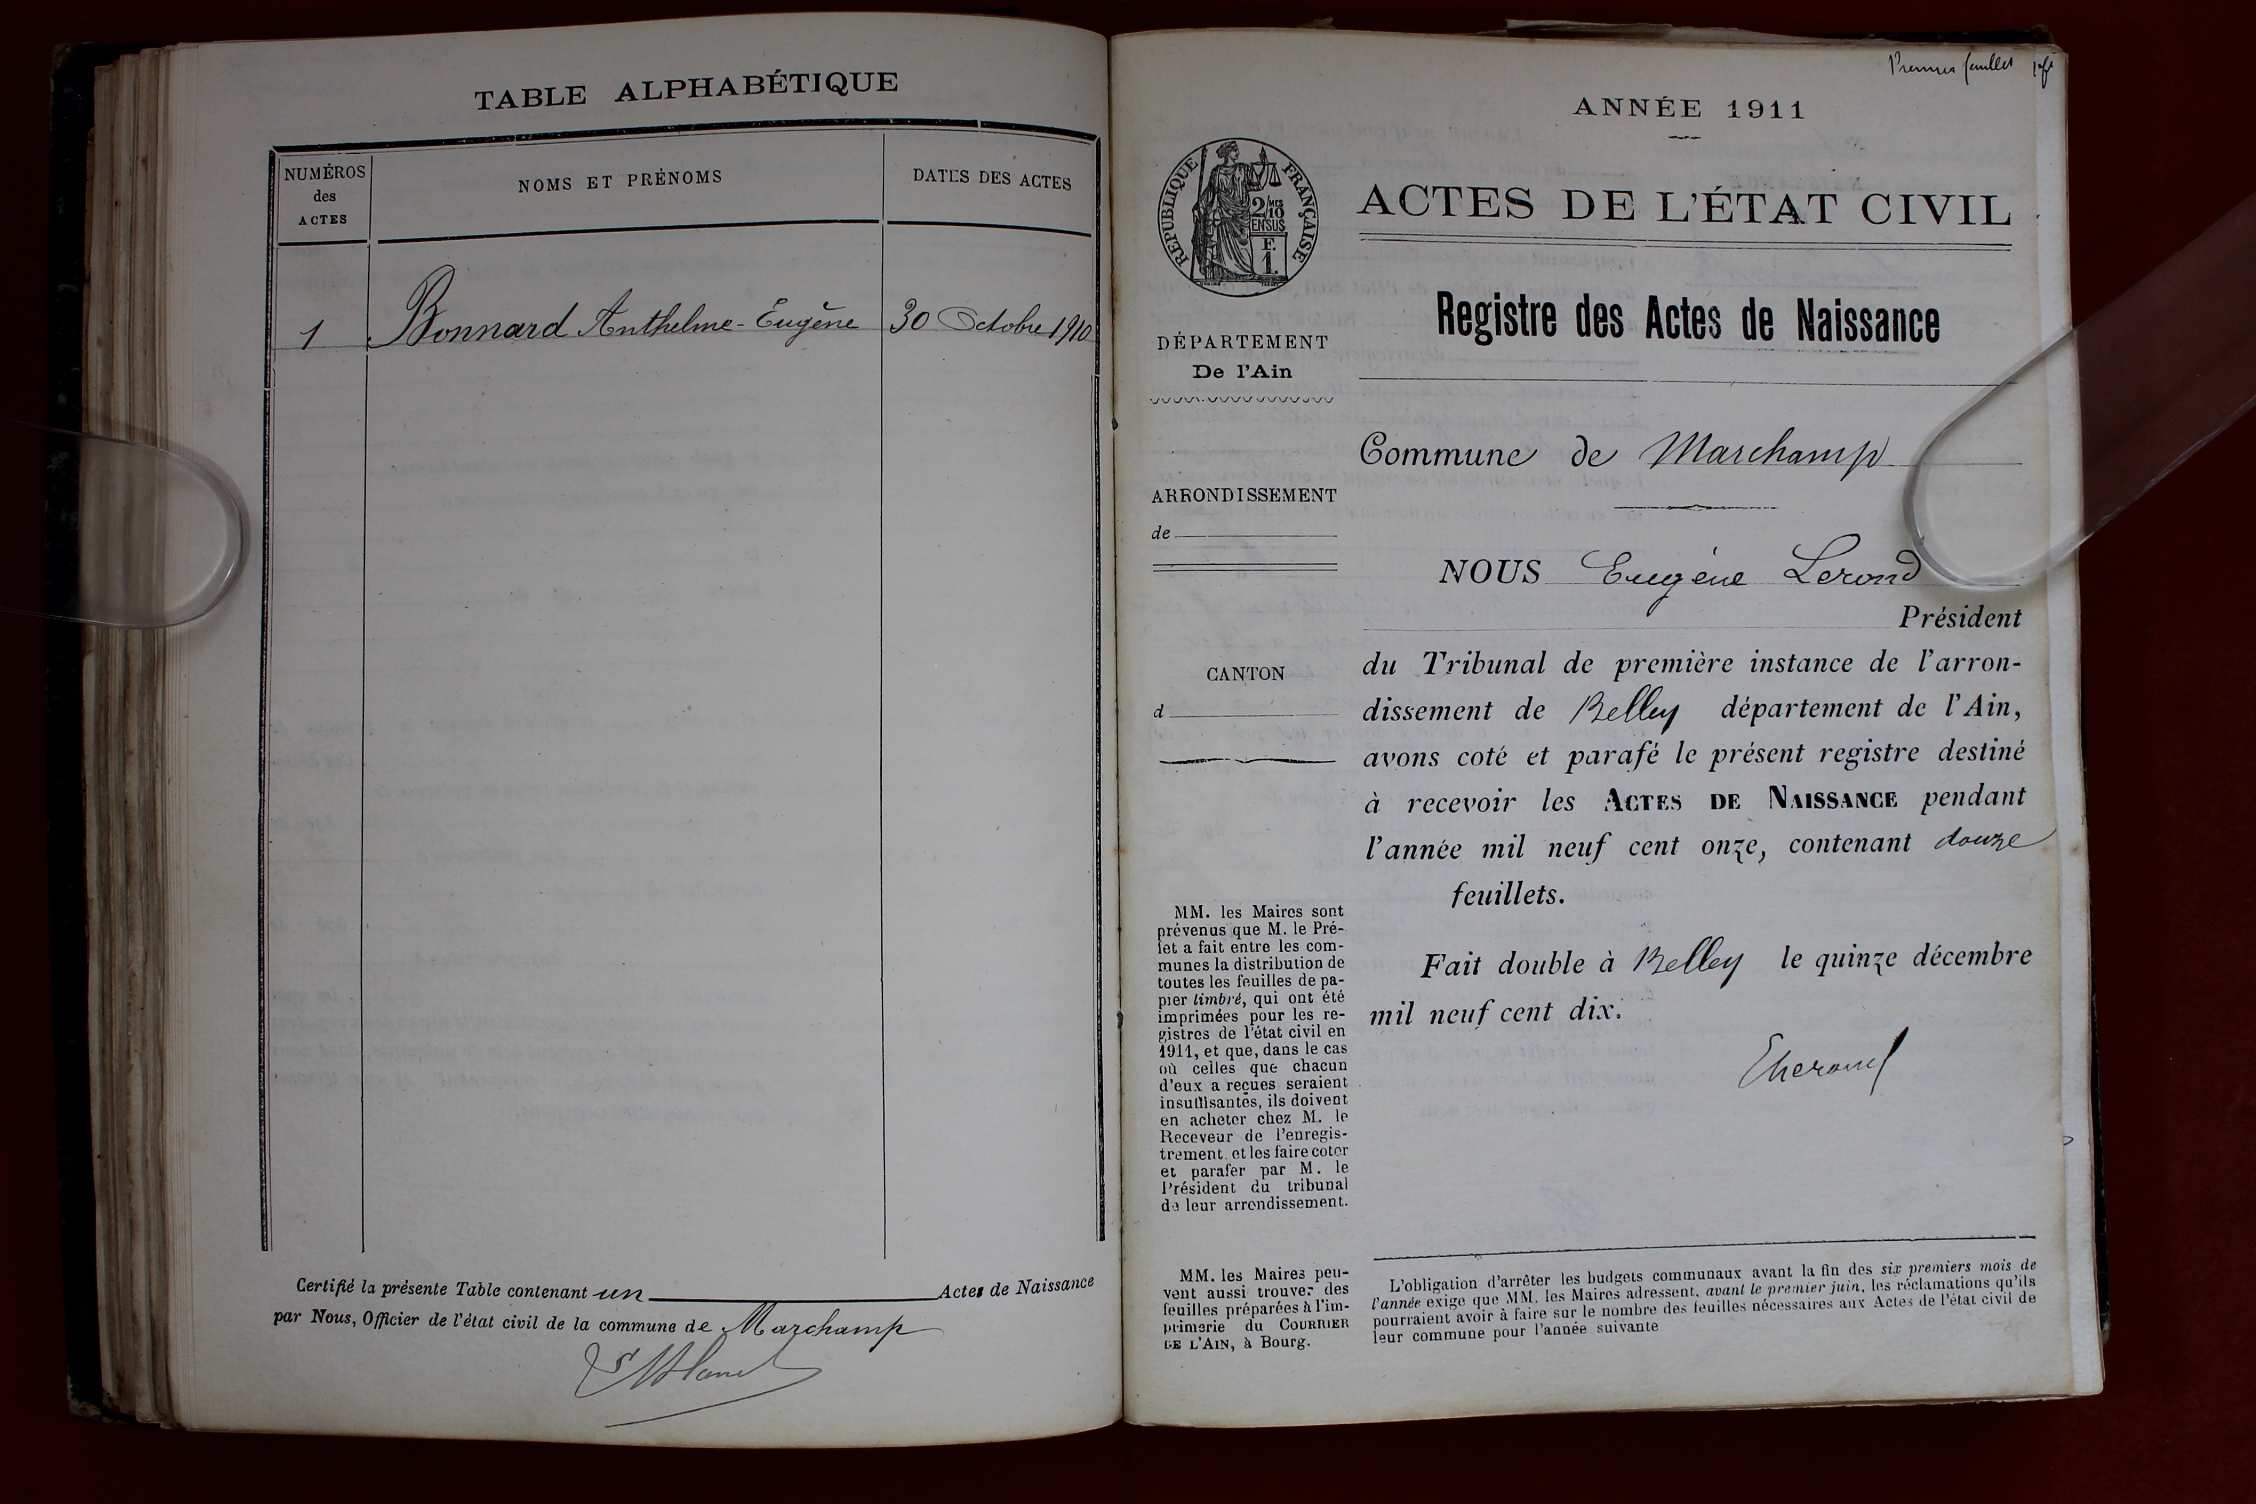 TABLE ALPHABÉTIQUE
NUMÉROS
des
ACTES
NOMS ET PRÉNOMS
DATES DES ACTES
1 Bonnard Anthelme-Eugène 30 Octobre 1910
Certifié la présente Table contenant un Actes de Naissance
par Nous, Officier de l'état civil de la commune de Marchamp
Premier feuillet
ANNÉE 1911
RÉPUBLIQUE FRANÇAISE
2/10 MES
EN SUS
F.
1.
ACTES DE L'ÉTAT CIVIL
Registre des Actes de Naissance
DÉPARTEMENT
De l'Ain
Commune de Marchamp
ARRONDISSEMENT
de
NOUS Eugène Lerond
Président
CANTON
d
du Tribunal de première instance de l'arron-
dissement de Belley département de l'Ain,
avons coté et parafé le présent registre destiné
à recevoir les ACTES DE NAISSANCE pendant
l'année mil neuf cent onze, contenant douze
feuillets.
Fait double à Belley le quinze décembre
mil neuf cent dix.
MM. les Maires sont
prévenus que M. le Pré-
fet a fait entre les com-
munes la distribution de
toutes les feuilles de pa-
pier timbré, qui ont été
imprimées pour les re-
gistres de l'état civil en
1911, et que, dans le cas
où celles que chacun
d'eux a reçues seraient
insuffisantes, ils doivent
en acheter chez M. le
Receveur de l'enregis-
trement et les faire coter
et parafer par M. le
Président du tribunal
de leur arrondissement.
MM. les Maires peu-
vent aussi trouver des
feuilles préparées à l'im-
primerie du COURRIER
DE L'AIN, à Bourg.
L'obligation d'arrêter les budgets communaux avant la fin des six premiers mois de
l'année exige que MM. les Maires adressent, avant le premier juin, les réclamations qu'ils
pourraient avoir à faire sur le nombre des feuilles nécessaires aux Actes de l'état civil de
leur commune pour l'année suivante